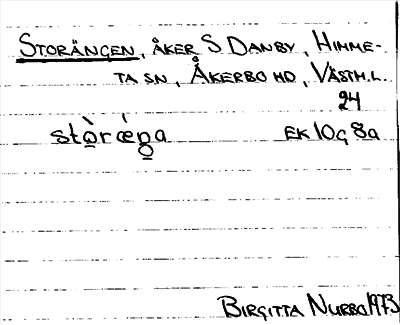 STORÄNGEN, ÅKER S DANBY, HIMME-
TA SN, ÅKERBO HD, VÄSTM.L.
24
stò̱rǽŋ̱a EK 10G 8a
BIRGITTA NURBO 1973